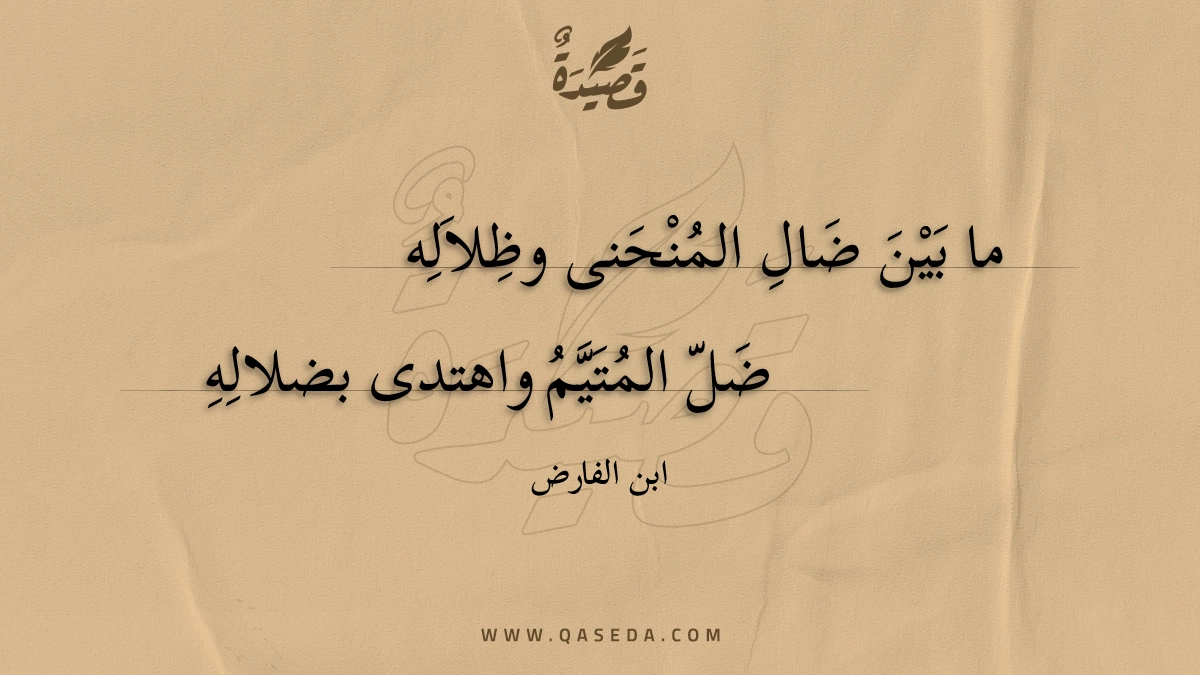 قَصِيدَةٌ
ما بَيْنَ ضَالِ المُنْحَنى وظِلالَِه
ضَلّ المُتَيَّمُ واهتدى بضلالِهِ
ابن الفارض
WWW.QASEDA.COM